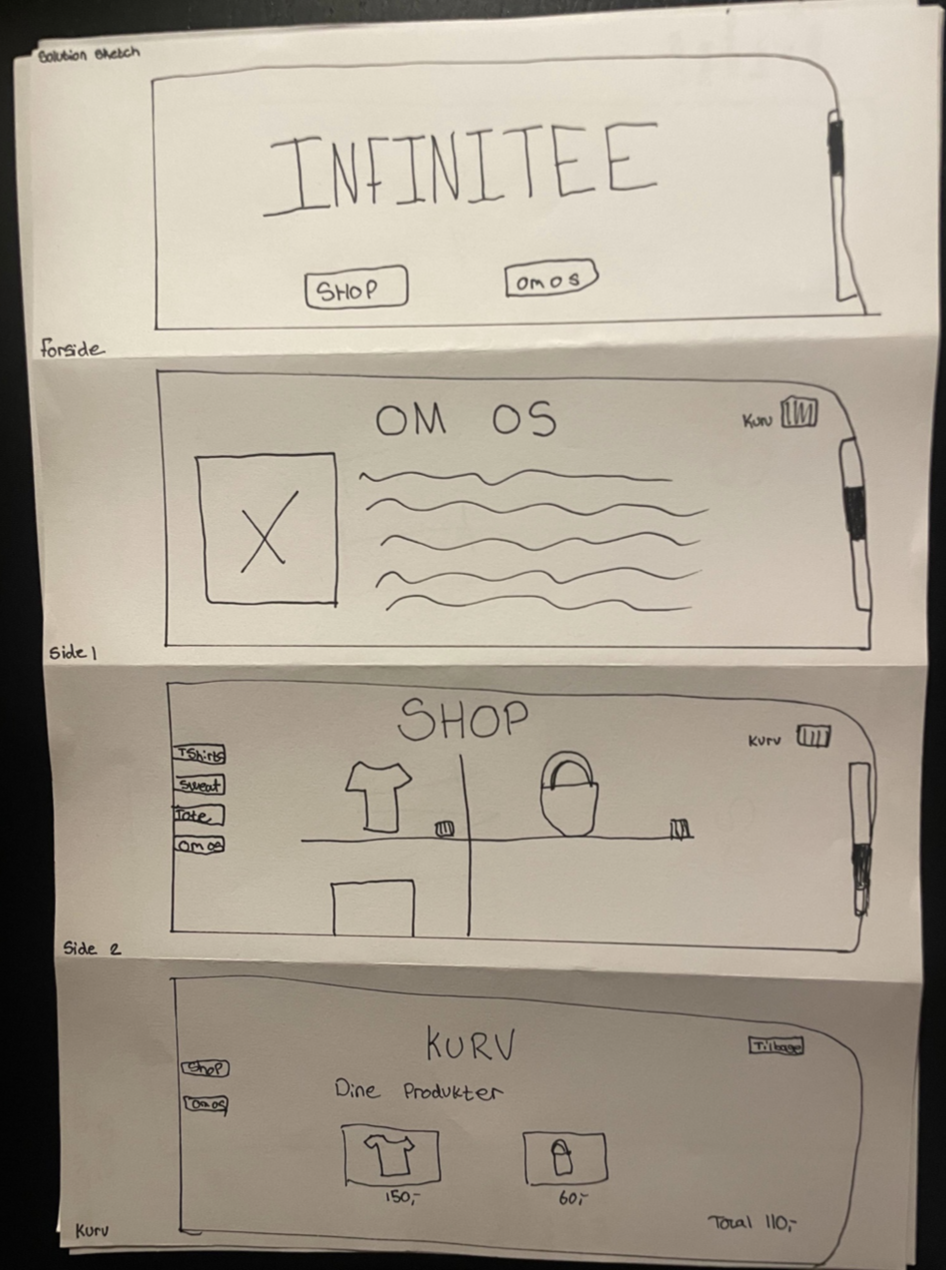 Solution Sketch
INFINITEE
SHOP
om os
Forside
OM OS
Kurv
Side 1
SHOP
Kurv
TShirts
Sweat
Tote
om os
Side 2
KURV
Tilbage
Shop
om os
Dine Produkter
150,- 60,-
Total 110,-
Kurv